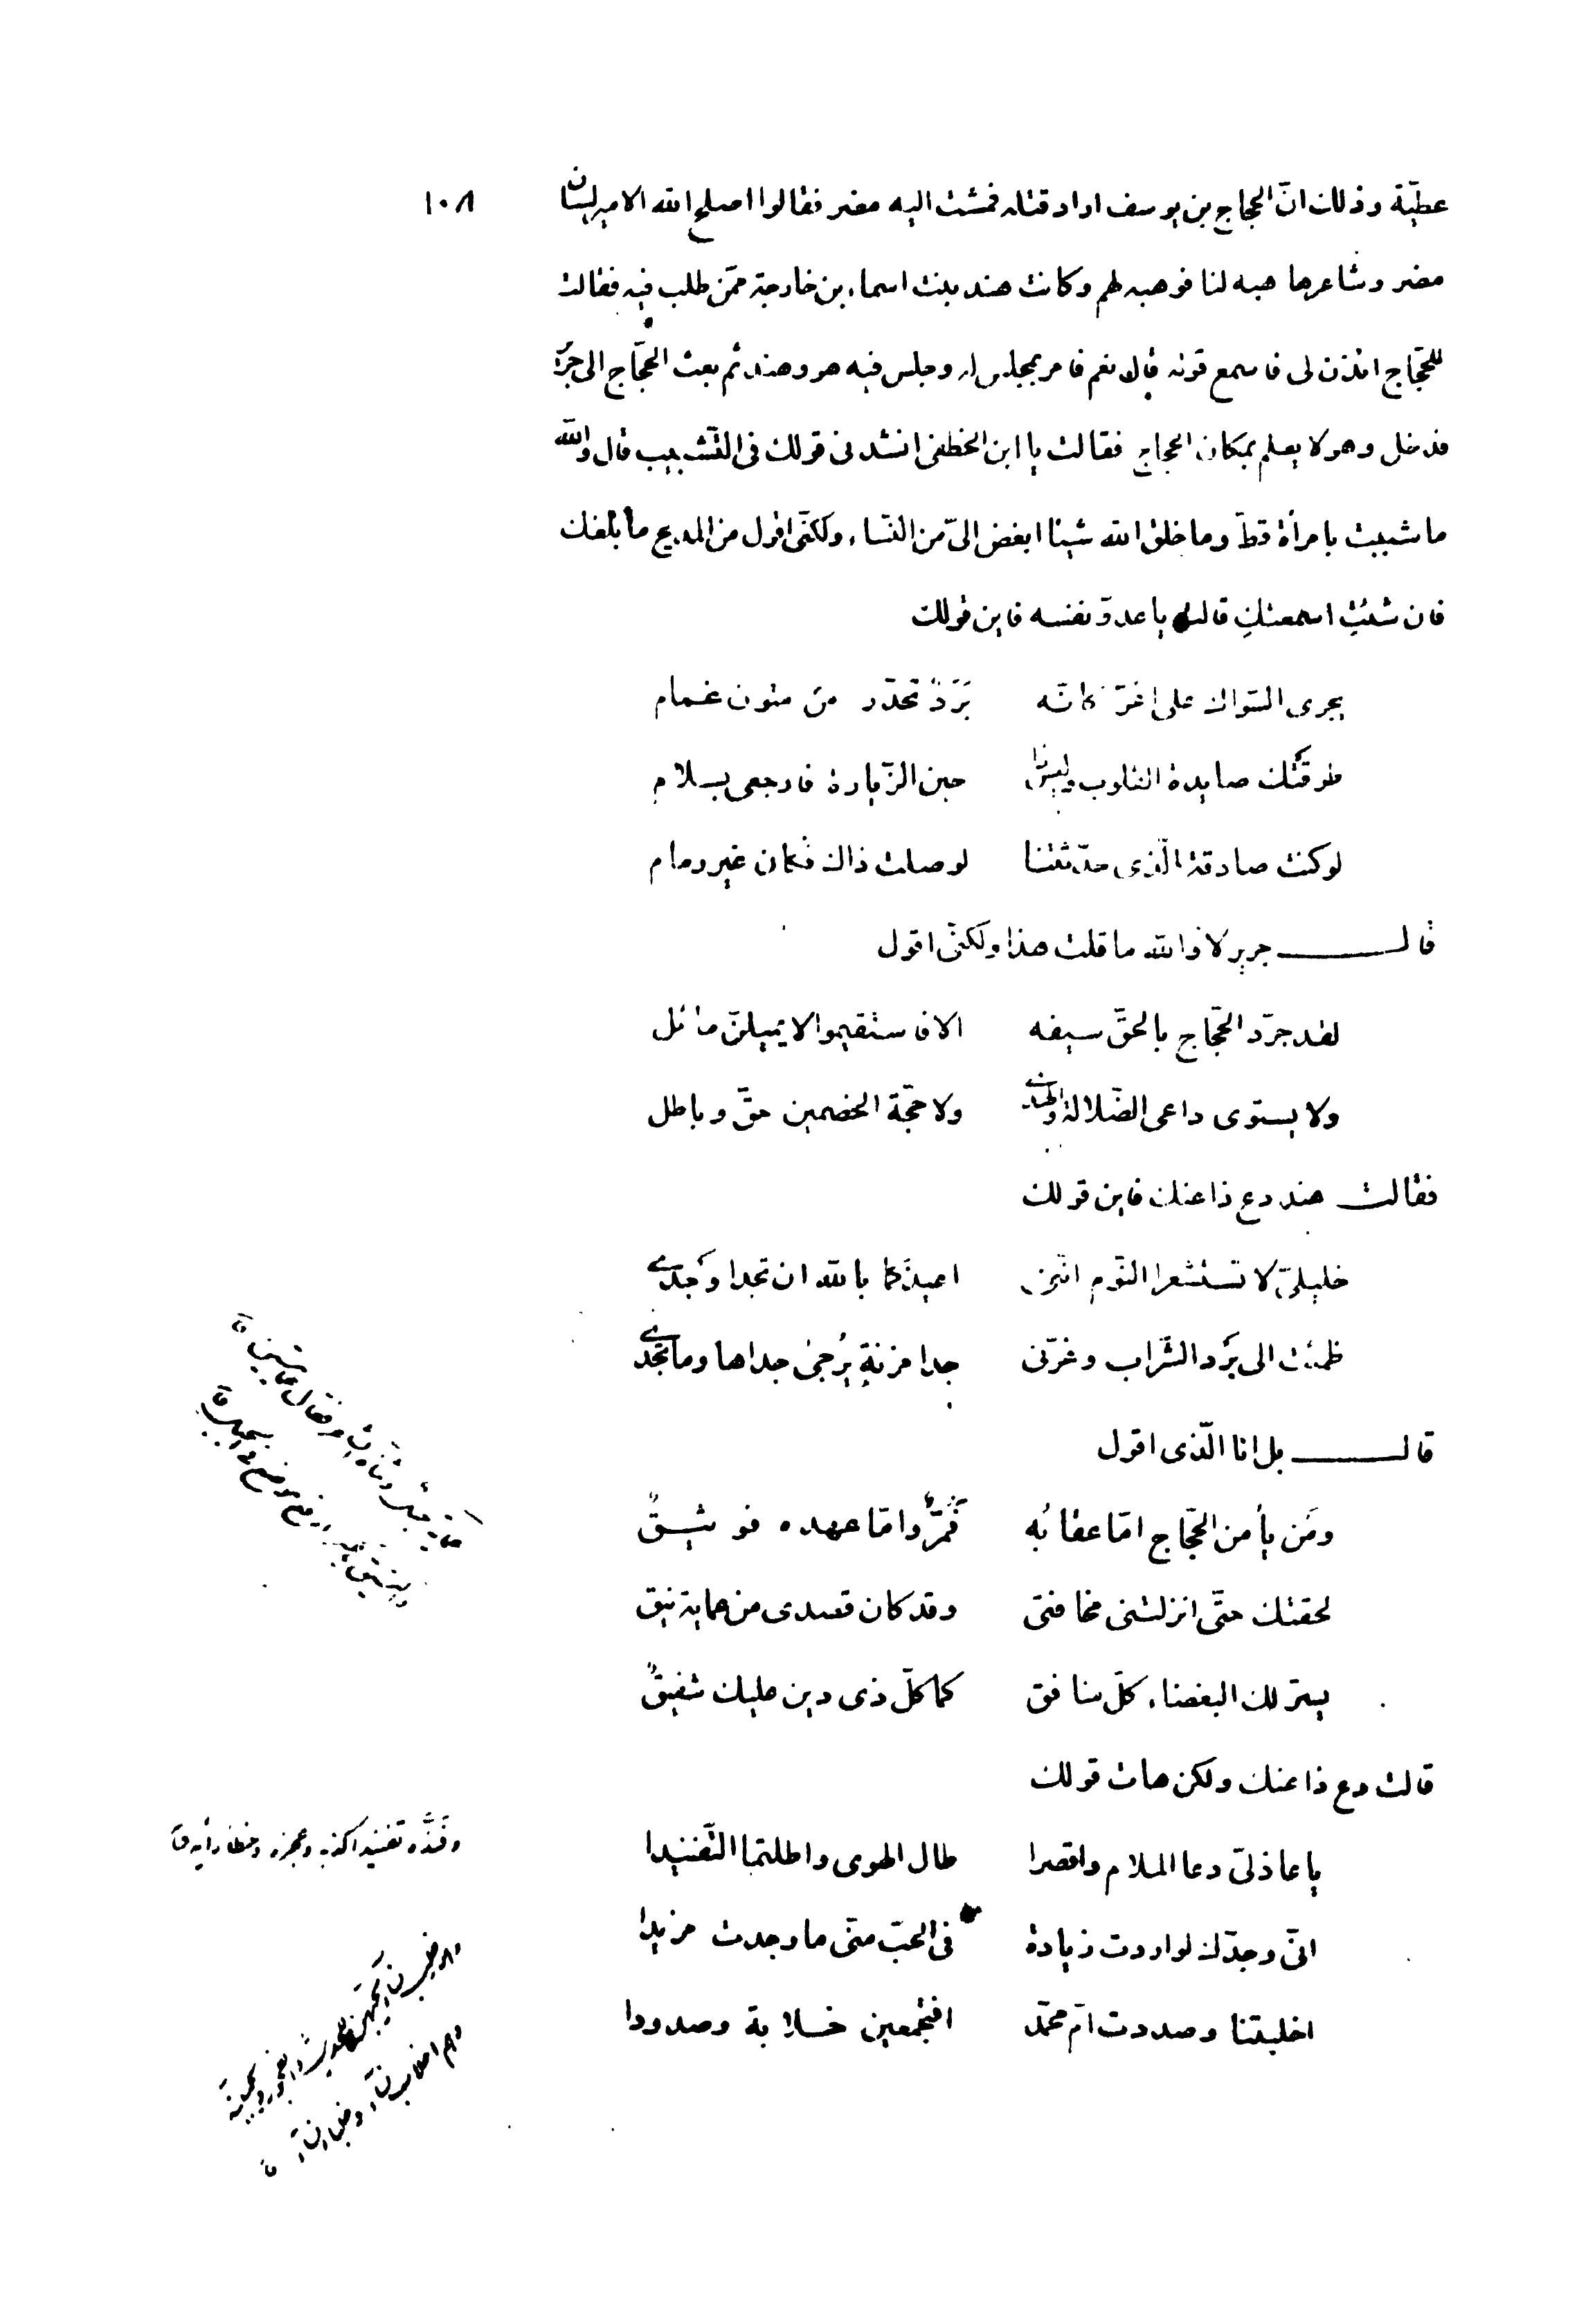 ١٠٨
عطيّة وذلك انّ الحجاج بن يوسف اراد قتله فمشت اليه مضر فقالوا اصلح الله الامير لسان
مضر وشاعرها هبه لنا فوهبه لهم وكانت هند بنت اسماء بن خارجة ممّن طلب فيه فقالت
للحجّاج ائذن لى فاسمع قوله قال نعم فامر بمجلس له وجلس فيه هو وهند ثم بعث الحجّاج الى جرير
فدخل وهو لا يعلم بمكان الحجاج فقالت يا ابن الخطفى انشدنى قولك فى التّشبيب قال والله
ما شببت بامرأة قطّ وما خلق الله شيئا ابغض الىّ من النّساء ولكنّى اقول من المديح ما بلغك
فان شئتِ اسمعتكِ قالت يا عدوّ نفسه فاين قولك
يجرى السّواك على اغرّ كانّه بَرَدٌ تحدّر من متون غمام
طرقَتْك صايدة القلوب وليس ذا حين الزّيارة فارجعى بسلام
لو كنت صادقة الّذى حدّثتنا لوصلت ذاك فكان غير رمام
قال جرير لا والله ما قلت هذا ولكنّى اقول
لقد جرّد الحجّاج بالحقّ سيفه الا فاستقيموا لا يميلنّ مائل
ولا يستوى داعى الضّلالة والهدى ولا حجّة الخصمين حقّ وباطل
فقالت هند دع ذا عنك فاين قولك
خليلىّ لا تستشعرا النّوم انّنى اعيذكما بالله ان تجدا وَجدى
ظمئت الى بَرد الشّراب وغرّنى جدا مزنةٍ يُرجى جداها وما تجدى
قال بل انا الّذى اقول
ومَن يأمن الحجّاج امّا عقابُه فمُرٌّ وامّا عهده فوثيقٌ
لحقتك حتّى انزلتنى مخافتى وقد كان قصدى من عماية نيق
يسرّ لك البغضاء كلّ منافق كما كلّ ذى دين عليك شفيقٌ
قالت دع ذا عنك ولكن هات قولك
يا عاذلىّ دعا الملام واقصرا طال الهوى واطلتما التّفنيدا
وفنّده تفنيدا كذبه وعجزه وخطأ رأيه ق
انّى وجدّك لو اردت زيادة فى الحبّ منّى ما وجدت مزيدا
اخلبتنا وصددت امّ محمّد افتجمعين خلابة وصدودا